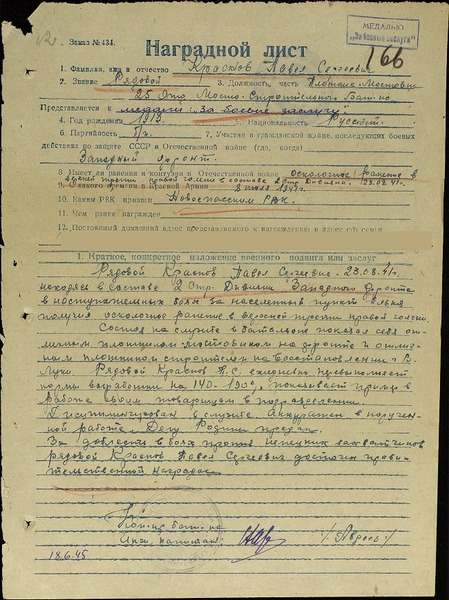 МЕДАЛЬЮ
"За боевые заслуги"
Заказ № 434.
166
Наградной лист
1. Фамилия, имя и отчество Краснов Павел Сергеевич
2. Звание Рядовой 3. Должность, часть Плотник-Мостовик
25 Отд. Мосто-Строительный Бат-на
Представляется к медали „За боевые заслуги“
4. Год рождения 1913 5. Национальность Русский
6. Партийность б/п. 7. Участие в гражданской войне, последующих боевых
действиях по защите СССР и Отечественной войне (где, когда)
Западный фронт.
8. Имеет ли ранения и контузии в Отечественной войне Осколочное ранение в
верхней трети правой голени в составе 2 стр. Дивизии. 23.08.41г.
9. С какого времени в Красной Армии 8 июля 1941г.
10. Каким РВК призван Новоспасским РВК.
11. Чем ранее награжден
12. Постоянный домашний адрес представляемого к награждению и адрес его семьи
1. Краткое, конкретное изложение военного подвига или заслуг
Рядовой Краснов Павел Сергеевич. 23.08.41г.
находясь в составе 2 Стр. Дивизии Западного фронта
в наступательных боях за населенный пункт Ельня
получил осколочное ранение в верхней трети правой голени.
Состоя на службе в батальоне показал себя от-
личным плотником мостовиком на фронте и отлич-
ным плотником строителем на Восстановлении г. В.
Луки. Рядовой Краснов П.С. ежедневно перевыполняет
нормы выработки на 140-190%, показывает пример в
работе своим товарищам в подразделении.
Дисциплинирован в службе. Аккуратен в поручен-
ной работе. Делу Родины предан.
За доблесть в боях против немецких захватчиков
рядовой Краснов Павел Сергеевич достоин прави-
тельственной награды.
Ком-ир бат-на
Инж. капитан
18.6.45